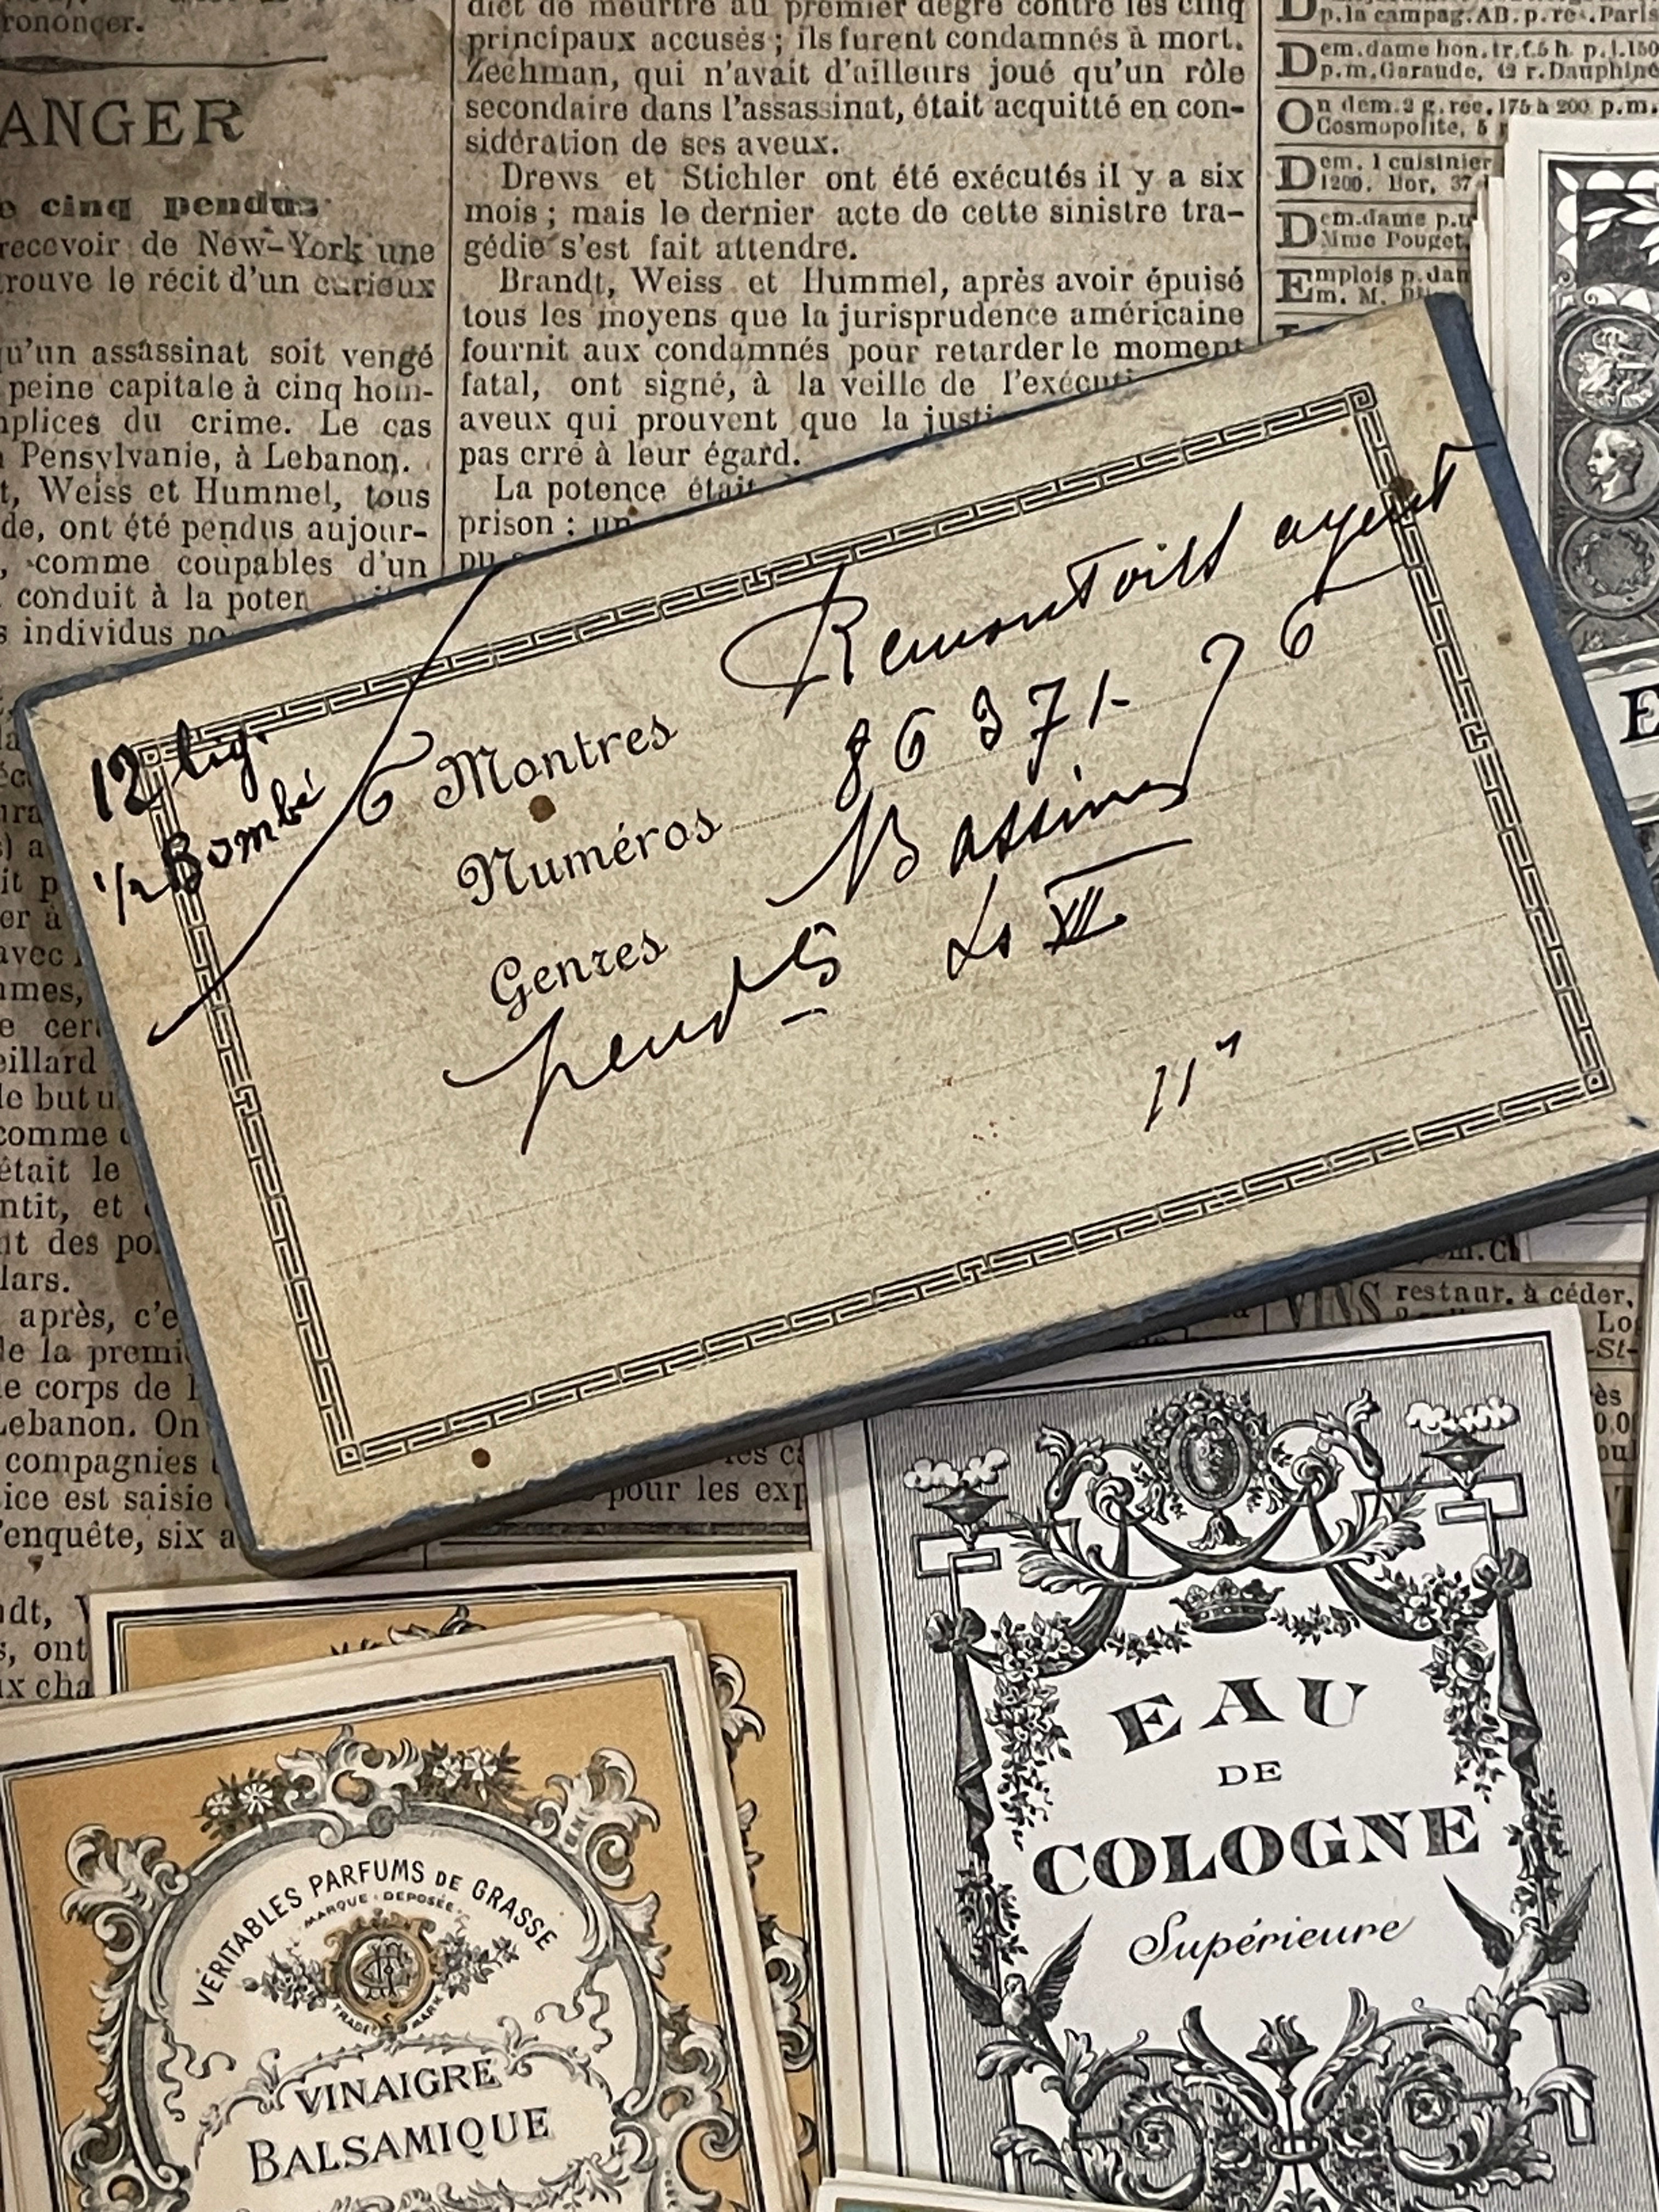 rononcer.
ANGER
cinq pendus
recevoir de New-York une
rouve le récit d'un curieux
qu'un assassinat soit vengé
peine capitale à cinq hom-
mplices du crime. Le cas
Pensylvanie, à Lebanon.
t, Weiss et Hummel, tous
de, ont été pendus aujour-
, comme coupables d'un
conduit à la poten
s individus no
dict de meurtre au premier degré contre les cinq
principaux accusés ; ils furent condamnés à mort.
Zechman, qui n'avait d'ailleurs joué qu'un rôle
secondaire dans l'assassinat, était acquitté en con-
sidération de ses aveux.
Drews et Stichler ont été exécutés il y a six
mois ; mais le dernier acte de cette sinistre tra-
gédie s'est fait attendre.
Brandt, Weiss et Hummel, après avoir épuisé
tous les moyens que la jurisprudence américaine
fournit aux condamnés pour retarder le moment
fatal, ont signé, à la veille de l'exécuti
aveux qui prouvent que la justi
pas erré à leur égard.
La potence était
prison : un
pu
p. la campag. AB. p. re . Paris
Dem. dame hon. tr. f. 5 h. p. j. 150
p. m. Garaude, 42 r. Dauphine
On dem. 2 g. rec. 175 à 200 p. m.
Cosmopolite, 5 r
Dem. 1 cuisinier
1200. Bor, 37
Dem. dame p.
Mme Pouget,
Emplois p. dan
m. M.
12 lig.
1/2 Bombé
6 Montres Remontoirs ayent
Numéros 86371- 76
Genres Bassines
pends Ls XII
11"
it p
er à
avec
mmes,
e cer
eillard
le but u
comme
était le
ntit, et
nt des po
lars.
après, c'e
de la premi
e corps de l
Lebanon. On
compagnies
ice est saisie
'enquête, six a
ndt,
s, ont
ux cha
pour les exp
VINS restaur. à céder,
Lo
-St-
E
EAU
DE
COLOGNE
Supérieure
VERITABLES PARFUMS DE GRASSE
MARQUE DEPOSÉE
TRADE MARK
VINAIGRE
BALSAMIQUE